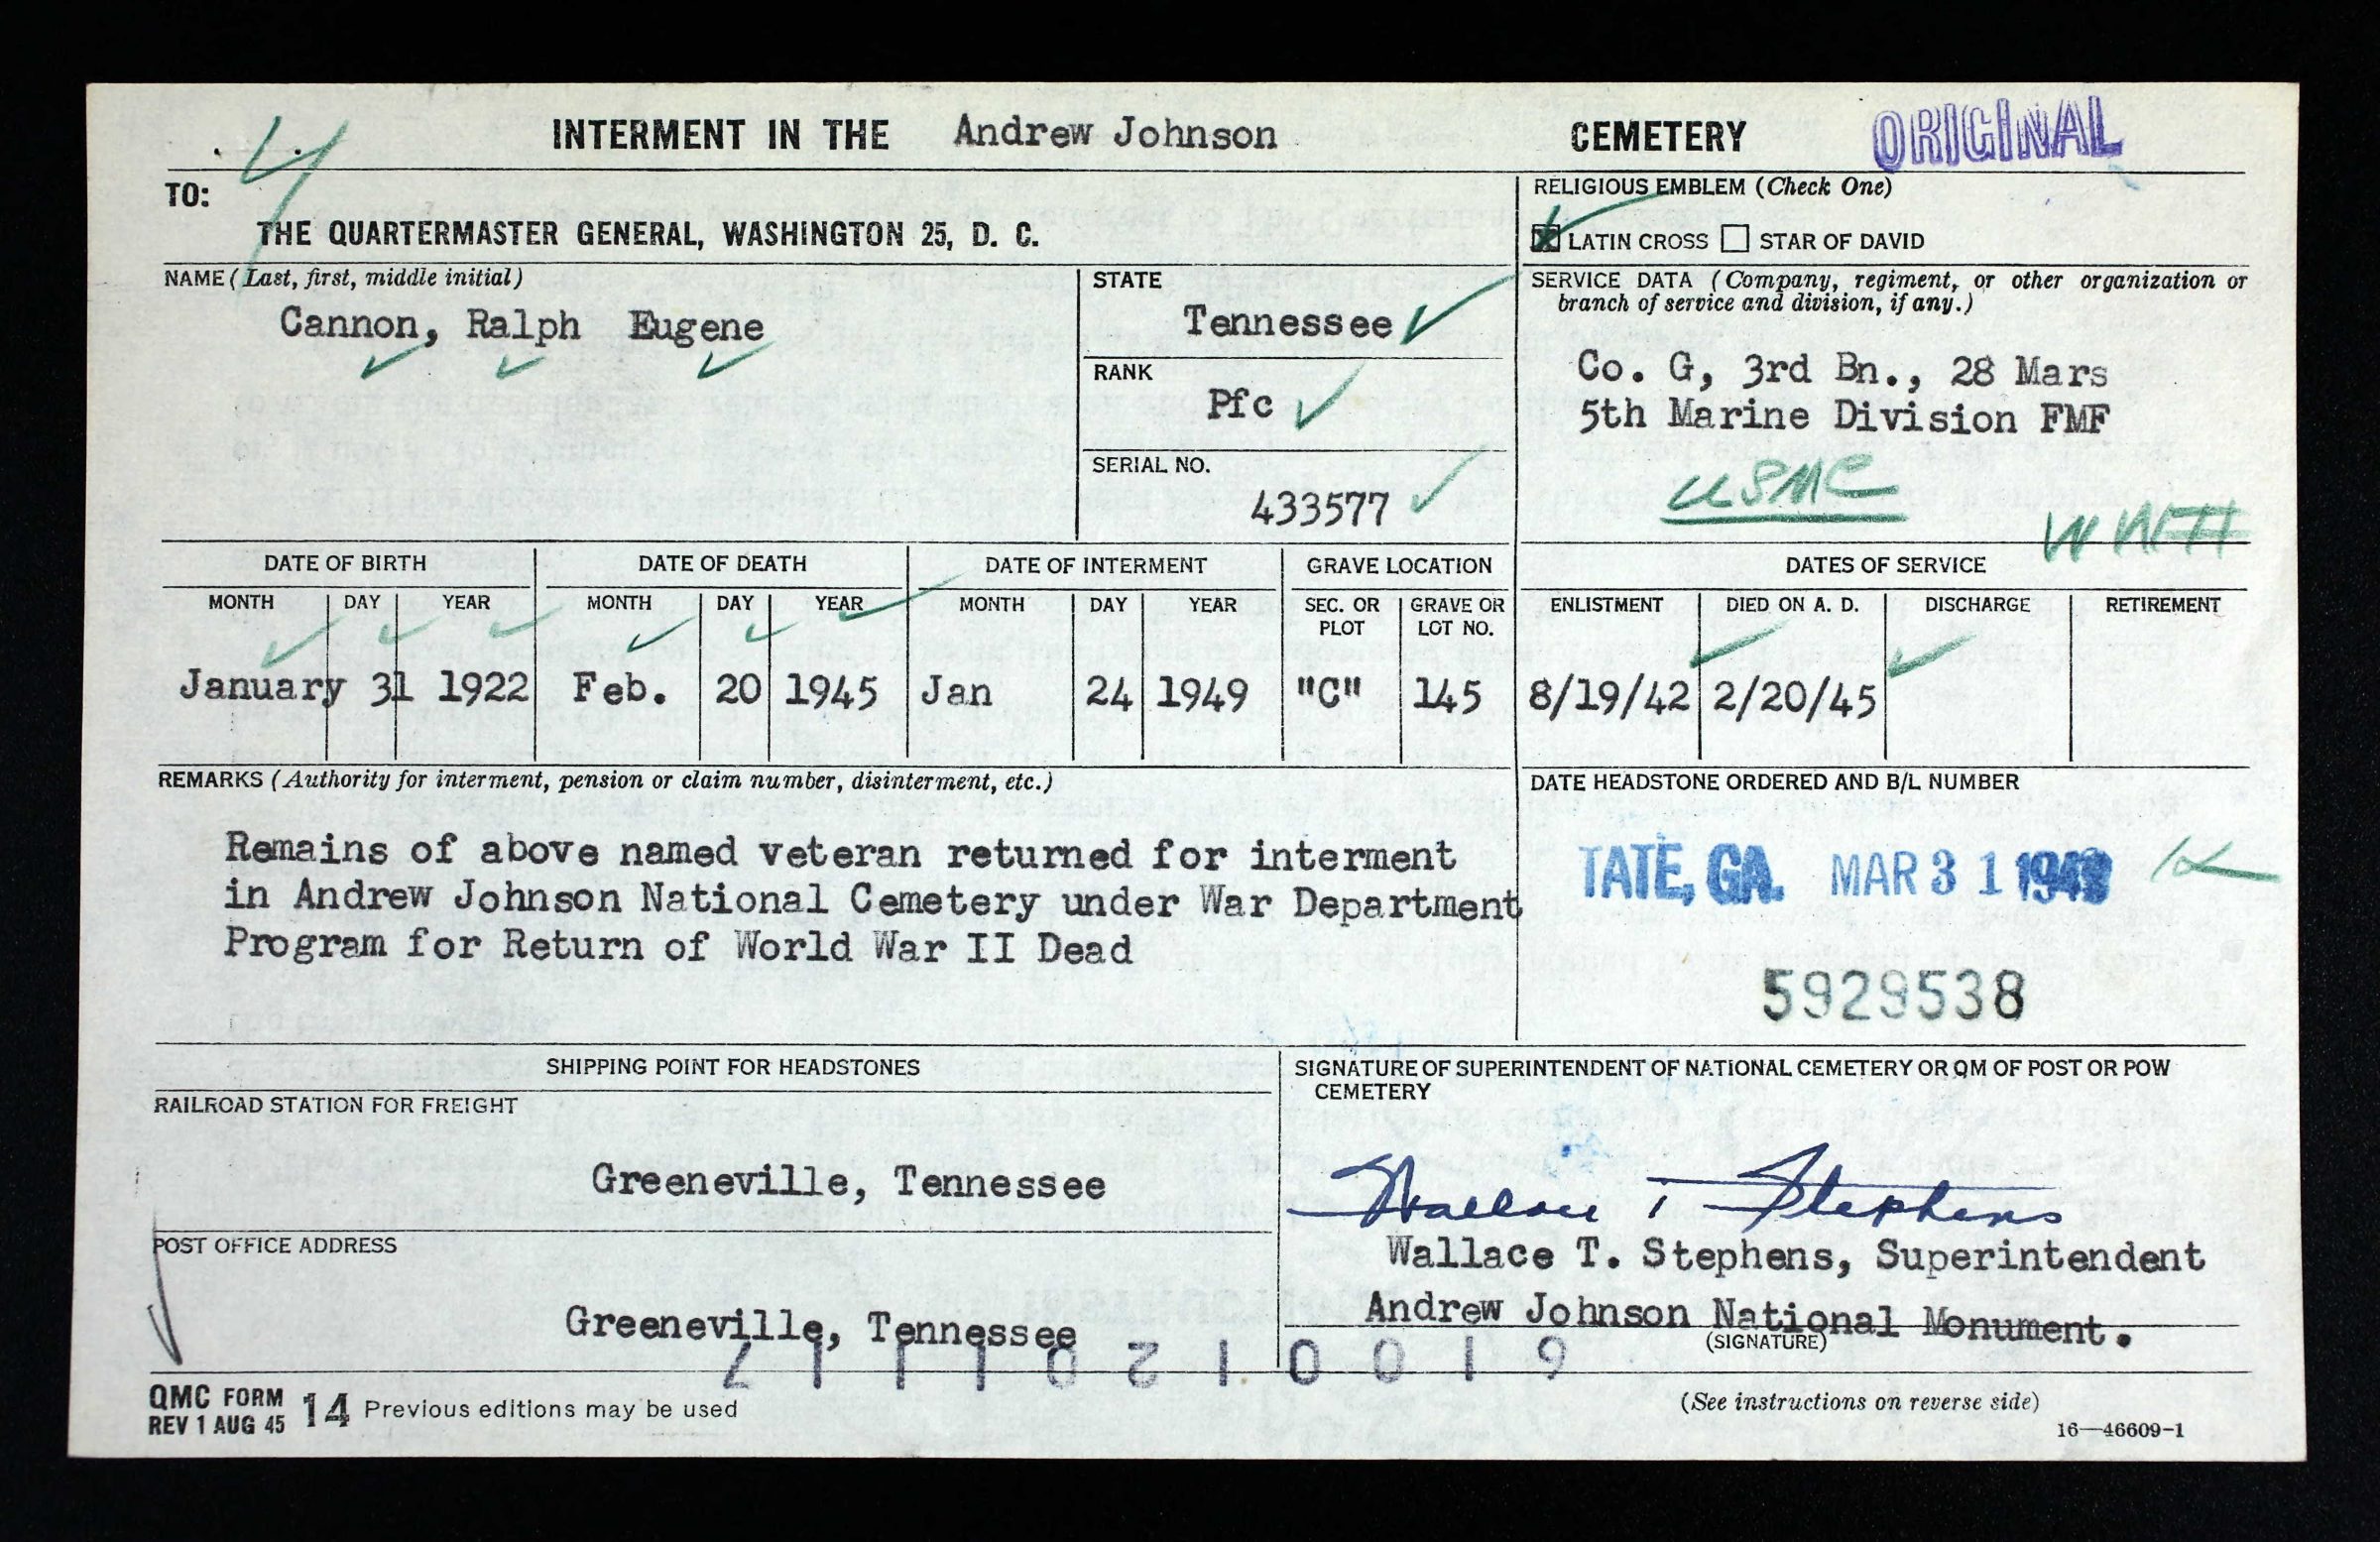 INTERMENT IN THE Andrew Johnson CEMETERY ORIGINAL
4
TO:
THE QUARTERMASTER GENERAL, WASHINGTON 25, D. C.
RELIGIOUS EMBLEM (Check One)
X LATIN CROSS STAR OF DAVID
NAME (Last, first, middle initial)
Cannon, Ralph Eugene
STATE
Tennessee
RANK
Pfc
SERIAL NO.
433577
SERVICE DATA (Company, regiment, or other organization or
branch of service and division, if any.)
Co. G, 3rd Bn., 28 Mars
5th Marine Division FMF
USMC
WWII
DATE OF BIRTH DATE OF DEATH DATE OF INTERMENT GRAVE LOCATION DATES OF SERVICE
MONTH DAY YEAR MONTH DAY YEAR MONTH DAY YEAR SEC. OR PLOT GRAVE OR LOT NO. ENLISTMENT DIED ON A. D. DISCHARGE RETIREMENT
January 31 1922 Feb. 20 1945 Jan 24 1949 "C" 145 8/19/42 2/20/45
REMARKS (Authority for interment, pension or claim number, disinterment, etc.)
Remains of above named veteran returned for interment
in Andrew Johnson National Cemetery under War Department
Program for Return of World War II Dead
DATE HEADSTONE ORDERED AND B/L NUMBER
TATE, GA. MAR 31
5929538
SHIPPING POINT FOR HEADSTONES
RAILROAD STATION FOR FREIGHT
Greeneville, Tennessee
POST OFFICE ADDRESS
Greeneville, Tennessee
SIGNATURE OF SUPERINTENDENT OF NATIONAL CEMETERY OR QM OF POST OR POW
CEMETERY
Wallace T Stephens
Wallace T. Stephens, Superintendent
Andrew Johnson National Monument.
(SIGNATURE)
61001201117
QMC FORM 14 Previous editions may be used
REV 1 AUG 45
(See instructions on reverse side)
16—46609-1